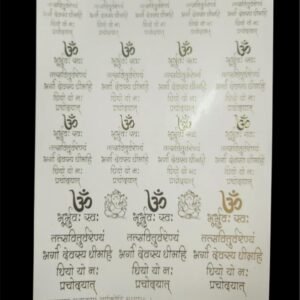 तत्सवितुर्वरेण्यं
भर्गो देवस्य धीमहि
धियो यो नः
प्रचोदयात्
तत्सवितुर्वरेण्यं
भर्गो देवस्य धीमहि
धियो यो नः
प्रचोदयात्
तत्सवितुर्वरेण्यं
भर्गो देवस्य धीमहि
धियो यो नः
प्रचोदयात्
तत्सवितुर्वरेण्यं
भर्गो देवस्य धीमहि
धियो यो नः
प्रचोदयात्
ॐ
भूर्भुवः स्वः
तत्सवितुर्वरेण्यं
भर्गो देवस्य धीमहि
धियो यो नः
प्रचोदयात्
ॐ
भूर्भुवः स्वः
तत्सवितुर्वरेण्यं
भर्गो देवस्य धीमहि
धियो यो नः
प्रचोदयात्
ॐ
भूर्भुवः स्वः
तत्सवितुर्वरेण्यं
भर्गो देवस्य धीमहि
धियो यो नः
प्रचोदयात्
ॐ
भूर्भुवः स्वः
तत्सवितुर्वरेण्यं
भर्गो देवस्य धीमहि
धियो यो नः
प्रचोदयात्
ॐ
भूर्भुवः स्वः
तत्सवितुर्वरेण्यं
भर्गो देवस्य धीमहि
धियो यो नः
प्रचोदयात्
ॐ
भूर्भुवः स्वः
तत्सवितुर्वरेण्यं
भर्गो देवस्य धीमहि
धियो यो नः
प्रचोदयात्
ॐ
भूर्भुवः स्वः
तत्सवितुर्वरेण्यं
भर्गो देवस्य धीमहि
धियो यो नः
प्रचोदयात्
ॐ
भूर्भुवः स्वः
तत्सवितुर्वरेण्यं
भर्गो देवस्य धीमहि
धियो यो नः
प्रचोदयात्
ॐ
भूर्भुवः स्वः
तत्सवितुर्वरेण्यं
भर्गो देवस्य धीमहि
धियो यो नः
प्रचोदयात्
ॐ
भूर्भुवः स्वः
तत्सवितुर्वरेण्यं
भर्गो देवस्य धीमहि
धियो यो नः
प्रचोदयात्
ॐ
भूर्भुवः स्वः
तत्सवितुर्वरेण्यं
भर्गो देवस्य धीमहि
धियो यो नः
प्रचोदयात्